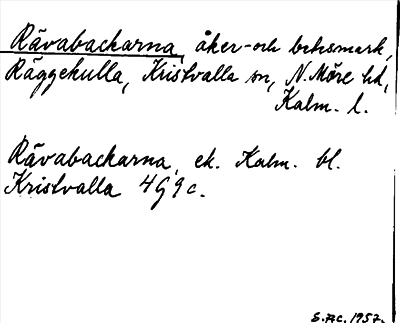 Rävabackarna, åker- och betesmark,
Räggekulla, Kristvalla sn, N. Möre hd,
Kalm. l.
Rävabackarna, ek. Kalm. bl.
Kristvalla 4G9c.
S.Ac. 1957.